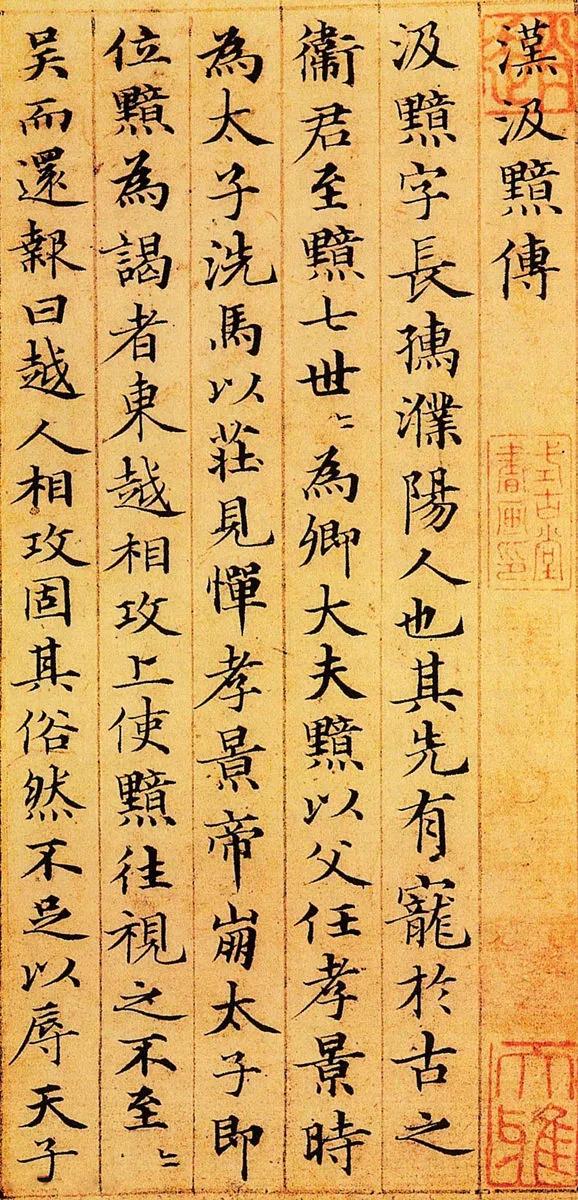 漢汲黯傳
汲黯字長孺濮陽人也其先有寵於古之
衛君至黯七世〻為卿大夫黯以父任孝景時
為太子洗馬以莊見憚孝景帝崩太子即
位黯為謁者東越相攻上使黯往視之不至〻
吳而還報曰越人相攻固其俗然不足以辱天子
式古堂
書畫印
大雅